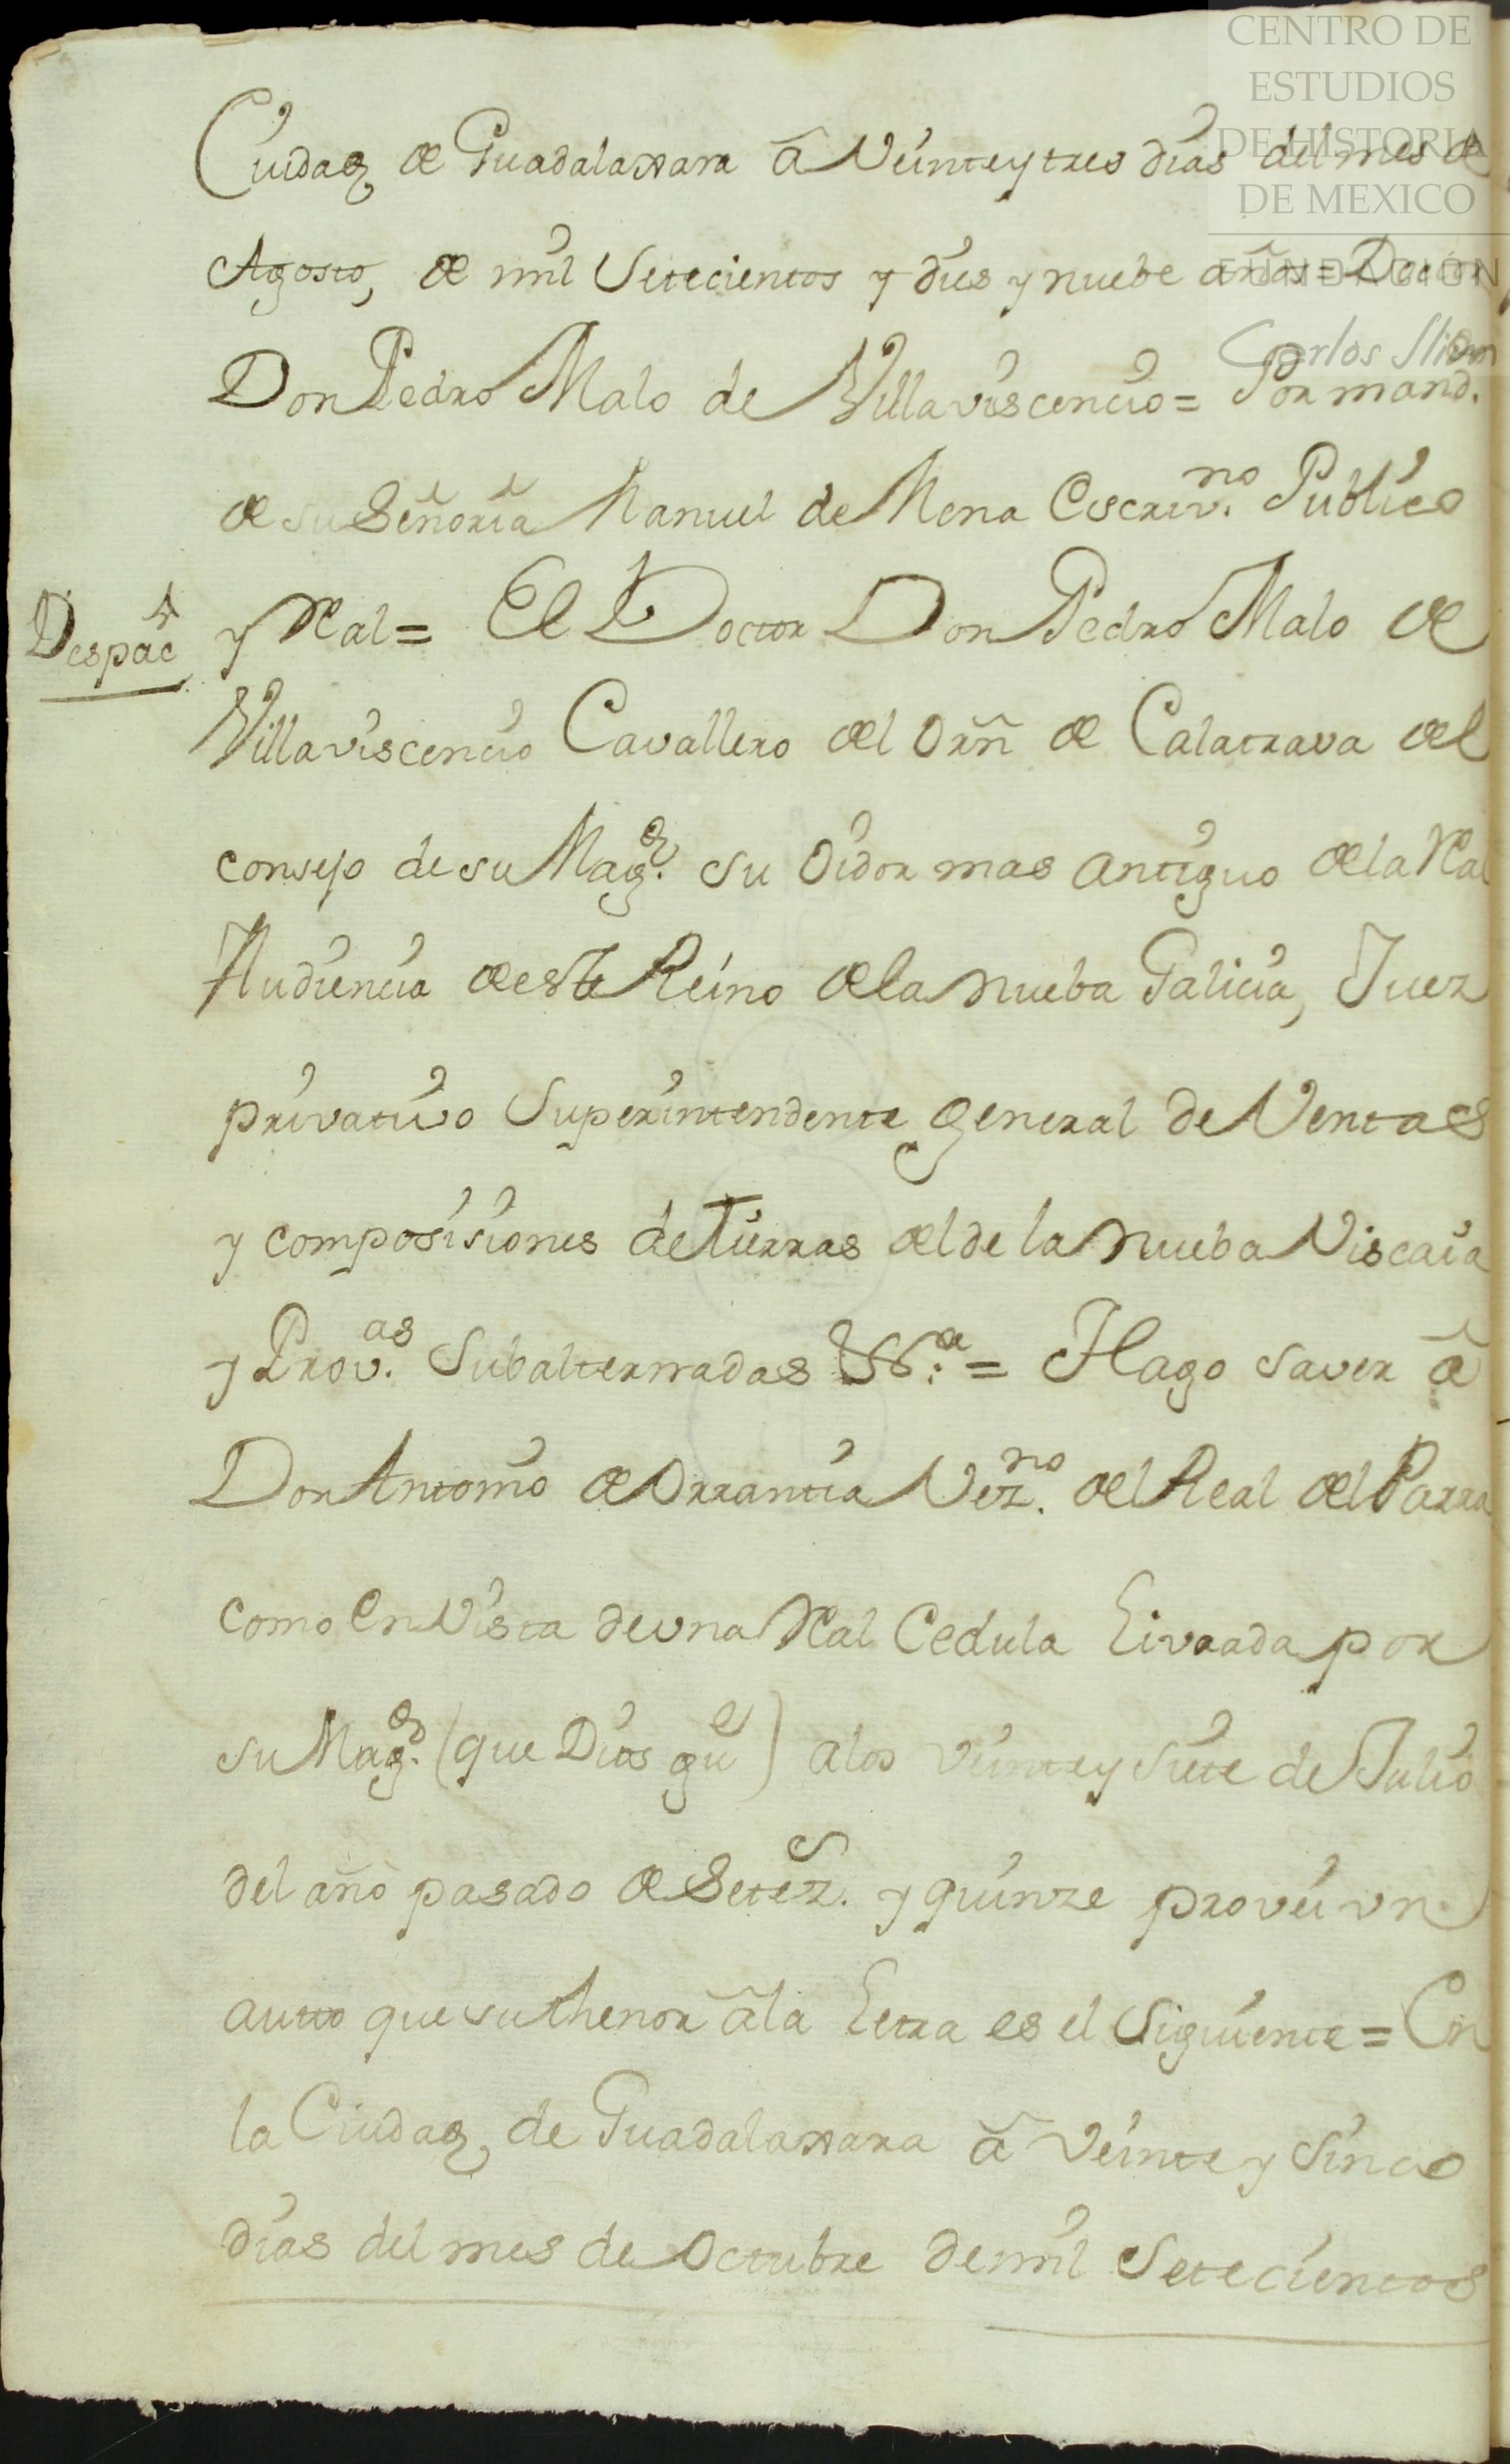 CENTRO DE
ESTUDIOS
DE HISTORIA
DE MEXICO
FUNDACIÓN
Carlos Slim
Ciudad de Guadalaxara â Veinte y tres dias del mes de
Agosto, de mil Setecientos y dies y nuebe años = Doctor
Don Pedro Malo de Villaviscencio = Por mand.
de su Señoria Manuel de Mena Escriv.no Publico
Despac y Real = El Doctor Don Pedro Malo de
Villaviscencio Cavallero del Orñ de Calatrava del
consejo de su Mag.d su Oidor mas antiguo de la Real
Audiencia de este Reino de la nueba Galicia, Juez
privativo Superintendente general de Ventas
y composisiones de Tierras del de la nueba Viscaia
y Prov.as Subalternadas &.a = Hago saver â
Don Antonio de Orrantia Vez.no del Real del Parra
como en Vista de una Real Cedula Livrada por
su Mag.d (que Dios gu.e) a los veinte y siete de Julio
del año pasado de Setez.s y quinze provei un
autto que su thenor â la Letra es el Siguiente = En
la Ciudad de Guadalaxara â veinte y sinco
dias del mes de Octubre de mil Setecientos